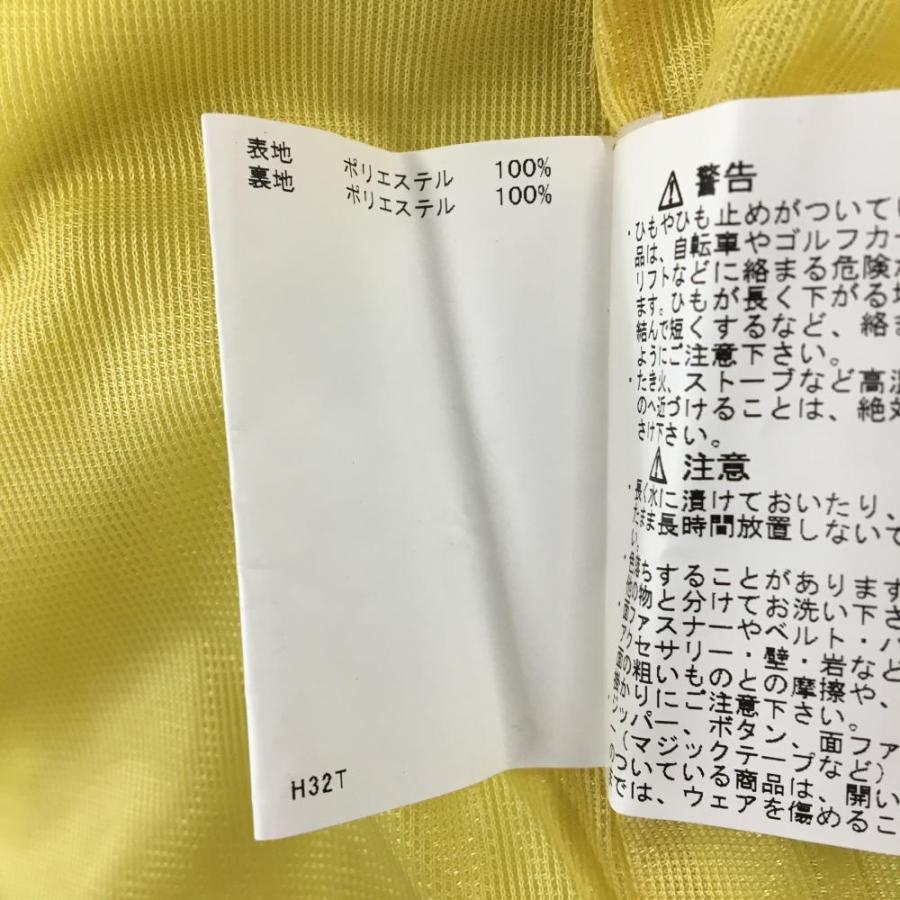 表地 ポリエステル 100%
裏地 ポリエステル 100%
H32T
警告
・ひもやひも止めがついてい
品は、自転車やゴルフカー
リフトなどに絡まる危険が
ます。ひもが長く下がる場
結んで短くするなど、絡ま
ようにご注意下さい。
・たき火、ストーブなど高温
のへ近づけることは、絶対
さけ下さい。
注意
・長く水に漬けておいたり、
たまま長時間放置しないで
い。
・色落ちすることがあります
他の物と分けてお洗い下さ
・面ファスナーやベルト・バ
アクセサリー・壁・岩など
面の粗いものとの摩擦や、
掛かりにもご注意下さい。
・ジッパー、ボタン、面ファ
ー（マジックテープなど）
のついている商品は、開い
までは、ウェアを傷めるこ